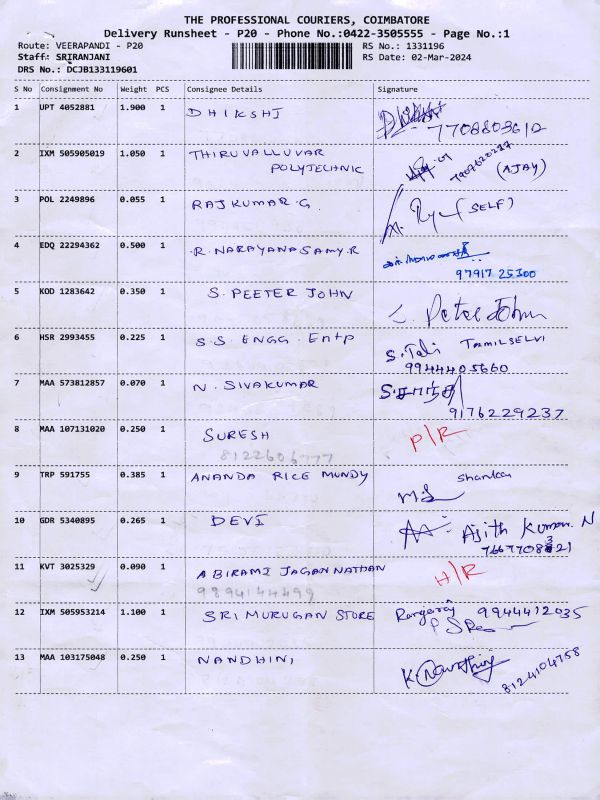 THE PROFESSIONAL COURIERS, COIMBATORE
Delivery Runsheet - P20 - Phone No.:0422-3505555 - Page No.:1
Route: VEERAPANDI - P20 RS No.: 1331196
Staff: SRIRANJANI RS Date: 02-Mar-2024
DRS No.: DCJB133119601
S No Consignment No Weight PCS Consignee Details Signature
1 UPT 4052881 1.900 1 DHIKSHI
7708803612
2 IXM 505905019 1.050 1 THIRUVALLUVAR
POLYTECHNIC (AJAY)
3 POL 2249896 0.055 1 RAJKUMAR.G (SELF)
4 EDQ 22294362 0.500 1 R. NARAYANASAMY.R
97917 25300
5 KOD 1283642 0.350 1 S. PEETER JOHN S. Peter John
6 HSR 2993455 0.225 1 S.S ENGG. Entp TAMILSELVI
9944405660
7 MAA 573812857 0.070 1 N. SIVAKUMAR
9176229237
8 MAA 107131020 0.250 1 SURESH P/R
8122606777
9 TRP 591755 0.385 1 ANANDA RICE MUNDY
10 GDR 5340895 0.265 1 DEVI Ajith Kumar. N
11 KVT 3025329 0.090 1 ABIRAMI JAGANNATHAN H/R
9894144499
12 IXM 505953214 1.100 1 SRI MURUGAN STORE Rangaraj 9944412035
13 MAA 103175048 0.250 1 NANDHINI
8124104758